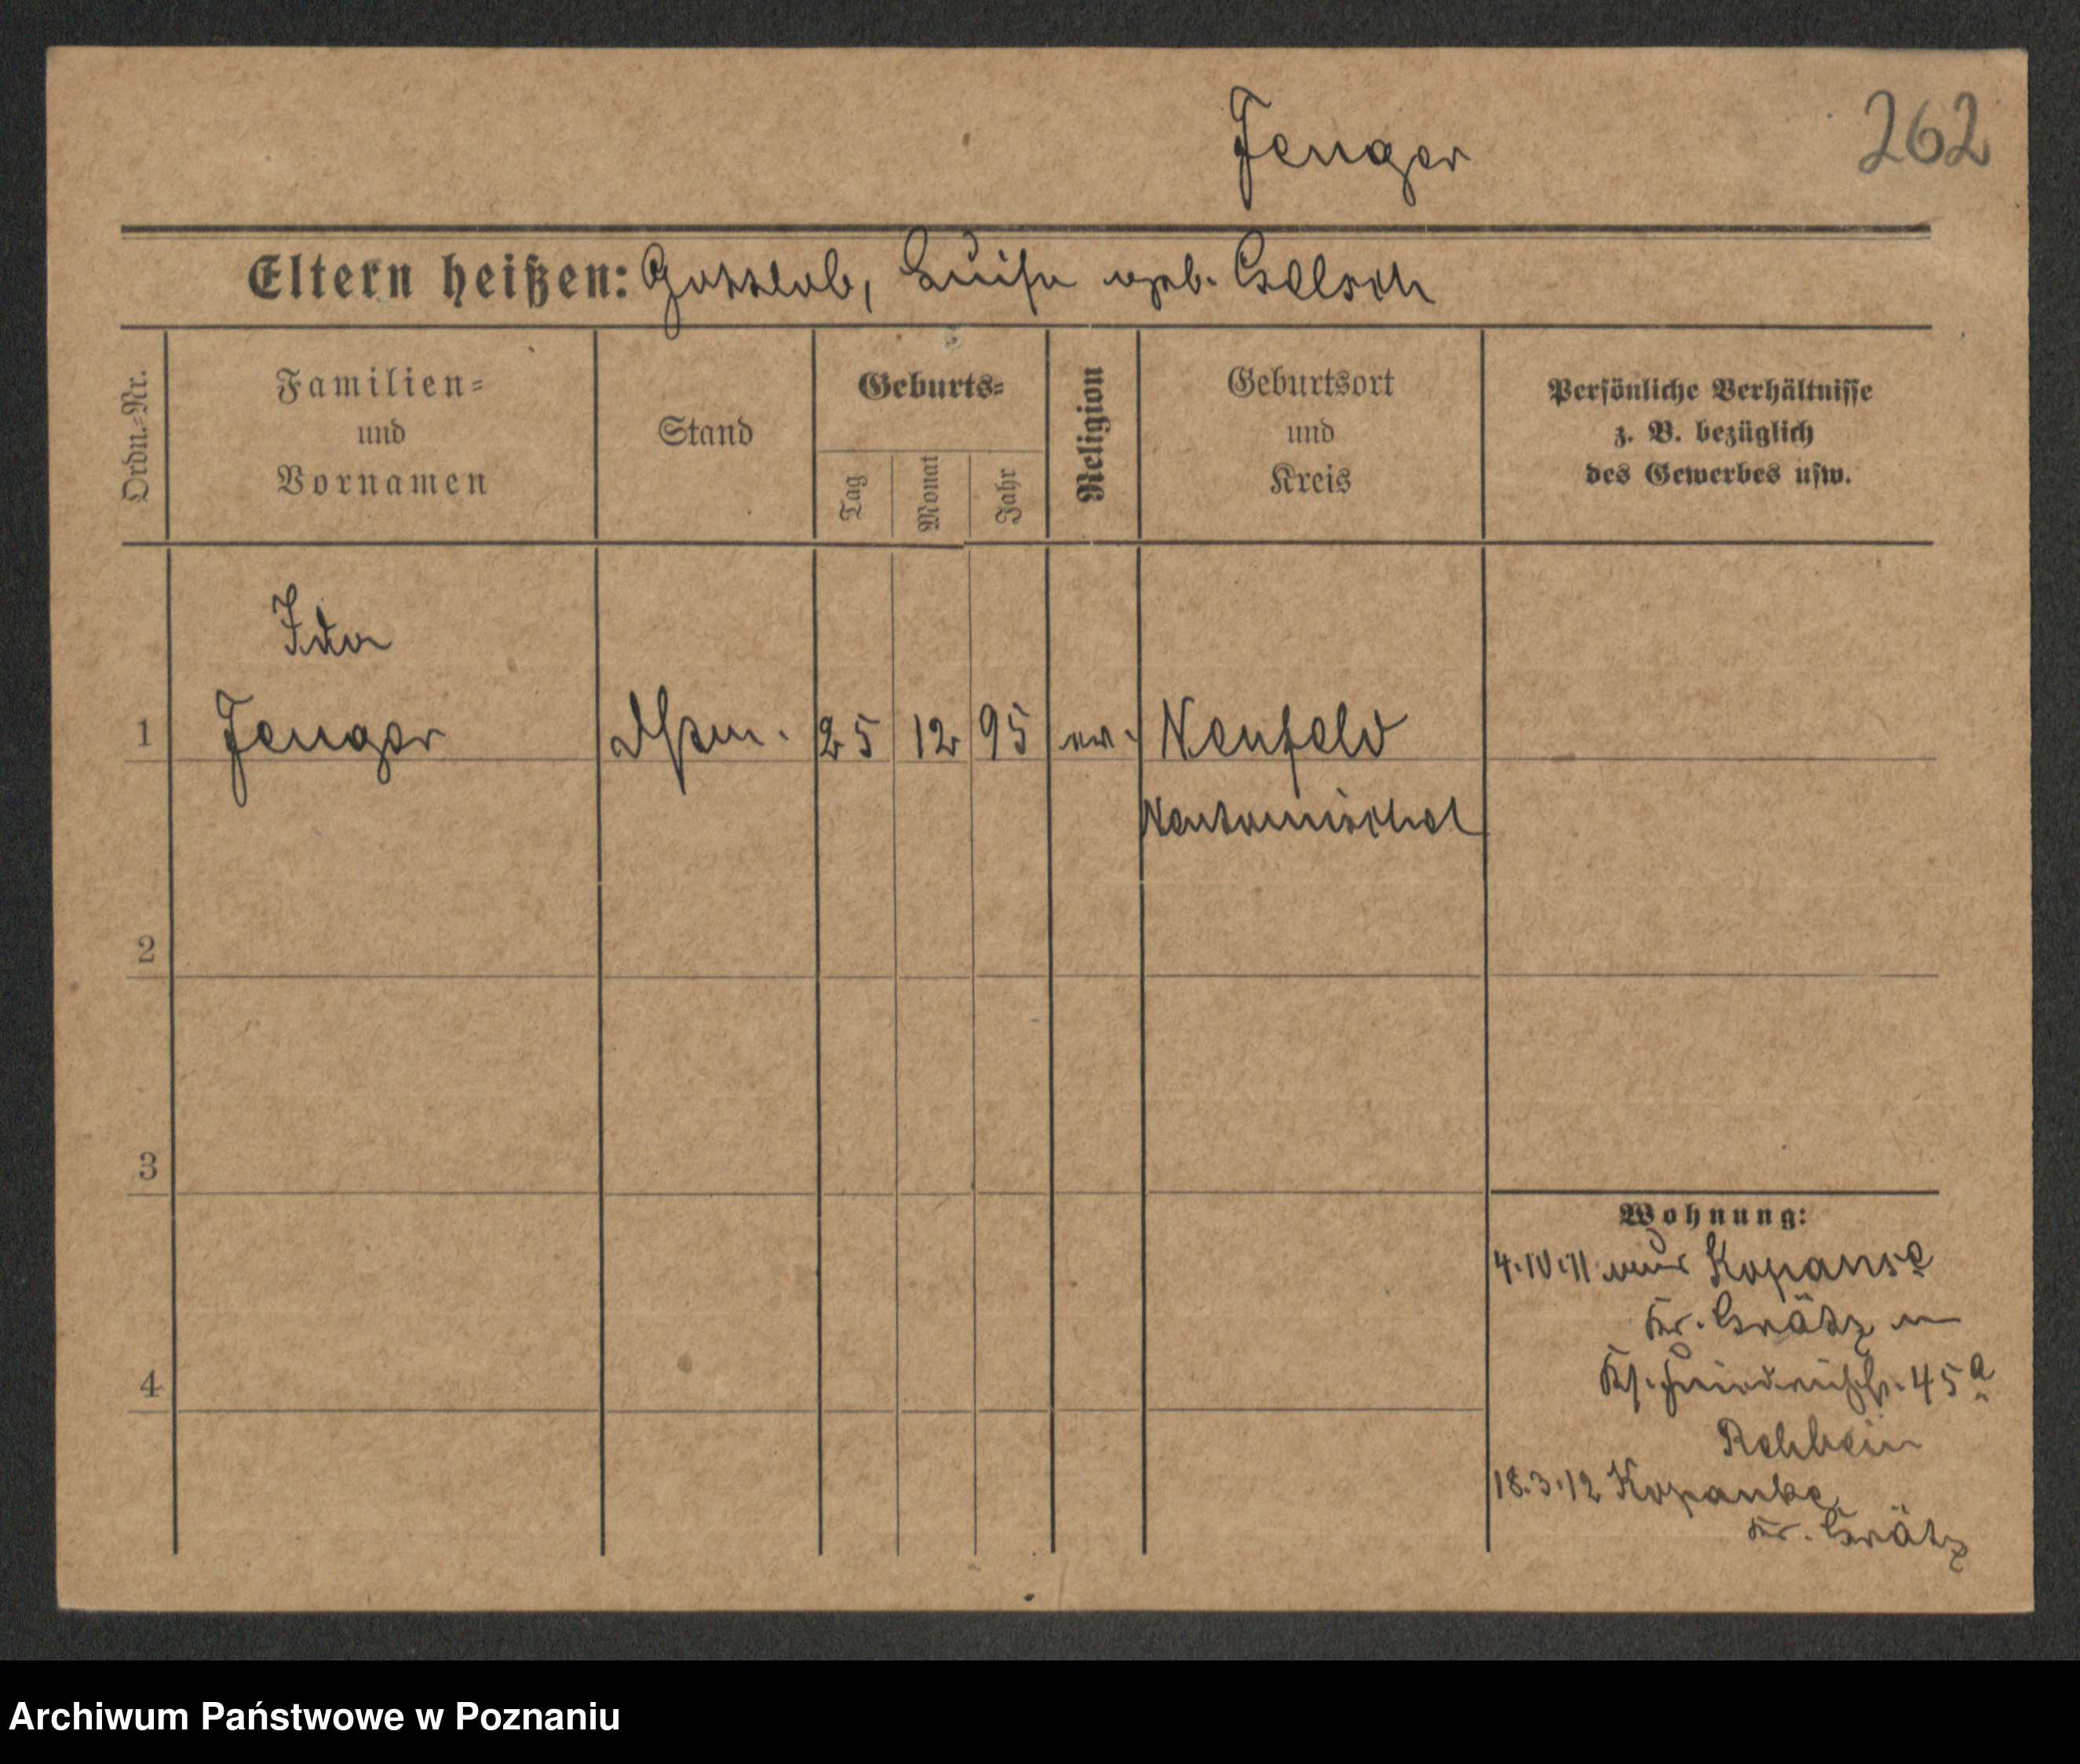 Jenger
262
Eltern heißen: Gottlob, Luise geb.
Ordn.-Nr.
Familien-
und
Vornamen
Stand
Geburts-
Tag
Monat
Jahr
Religion
Geburtsort
und
Kreis
Persönliche Verhältnisse
z. B. bezüglich
des Gewerbes usw.
Ida
1 Jenger 25 12 95 ev. Neufeld
Neutomischel
2
3
Wohnung:
4.10.11 Kopanke
Kr. Grätz
Friedrichstr. 45a
4
Rehbein
18.3.12 Kopanke
Kr. Grätz
Archiwum Państwowe w Poznaniu